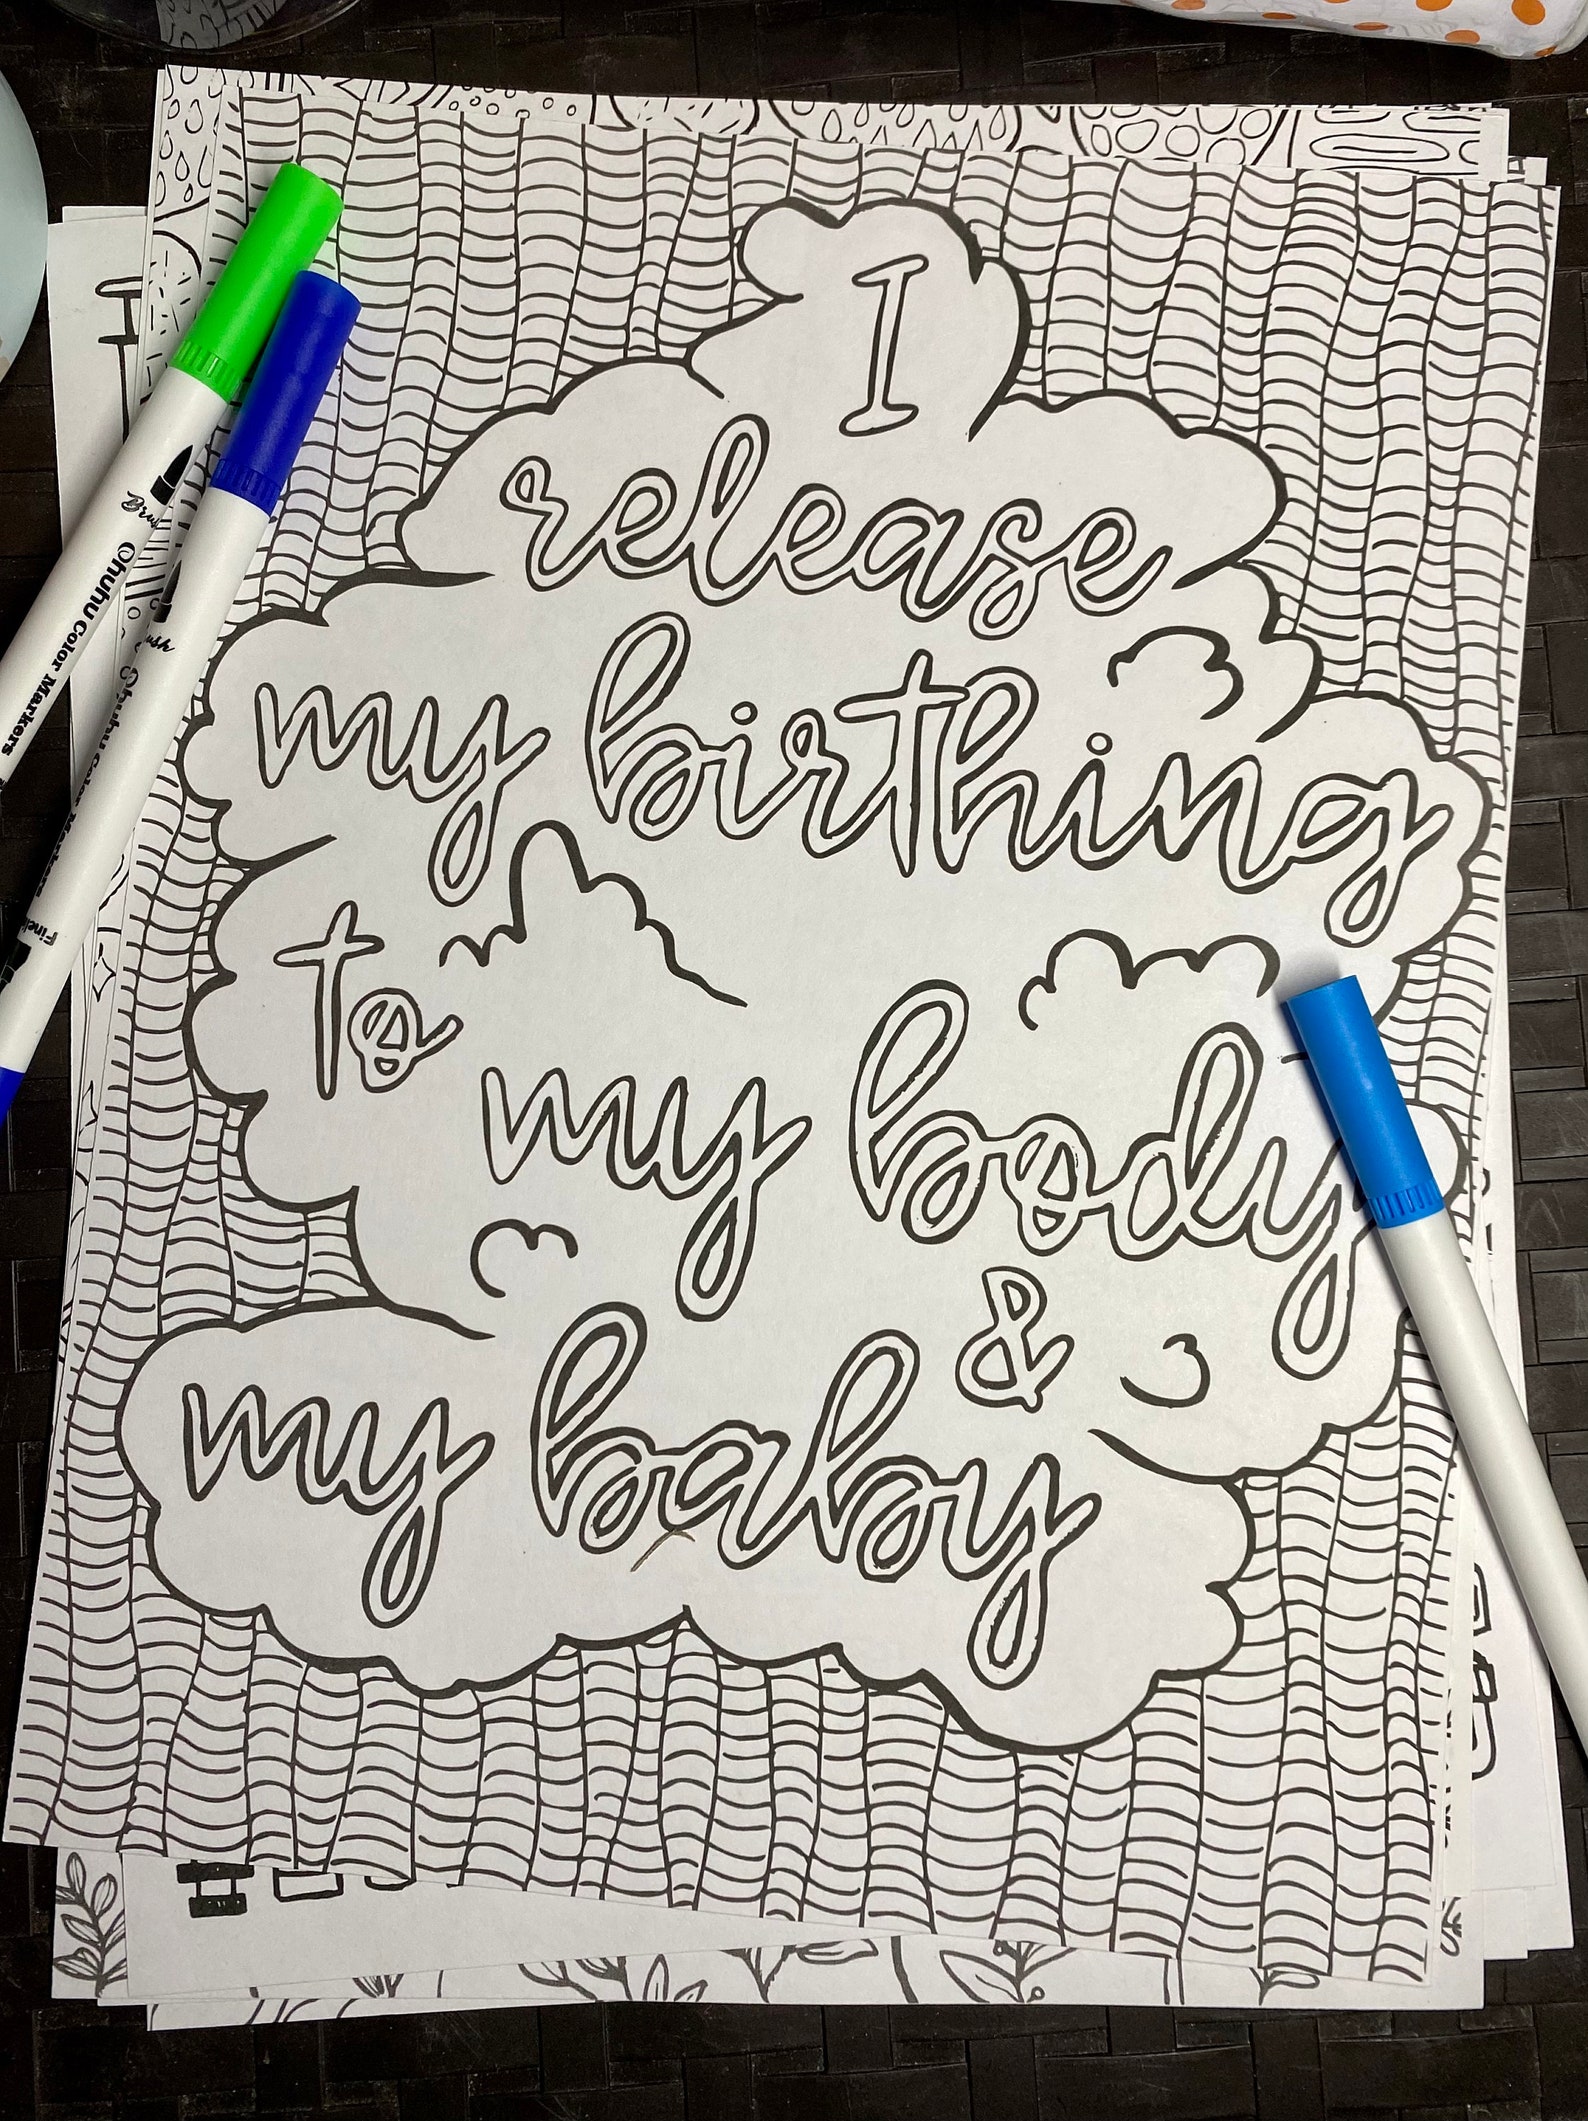 I
release
my birthing
to my body
&
my baby
Brush
Ohuhu Color Markers
ush
Ohuhu Color Markers
Fine
I